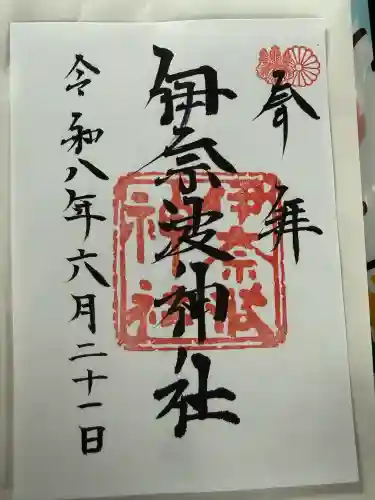 奉拝
伊奈波神社
伊奈波神社
令和八年六月二十一日